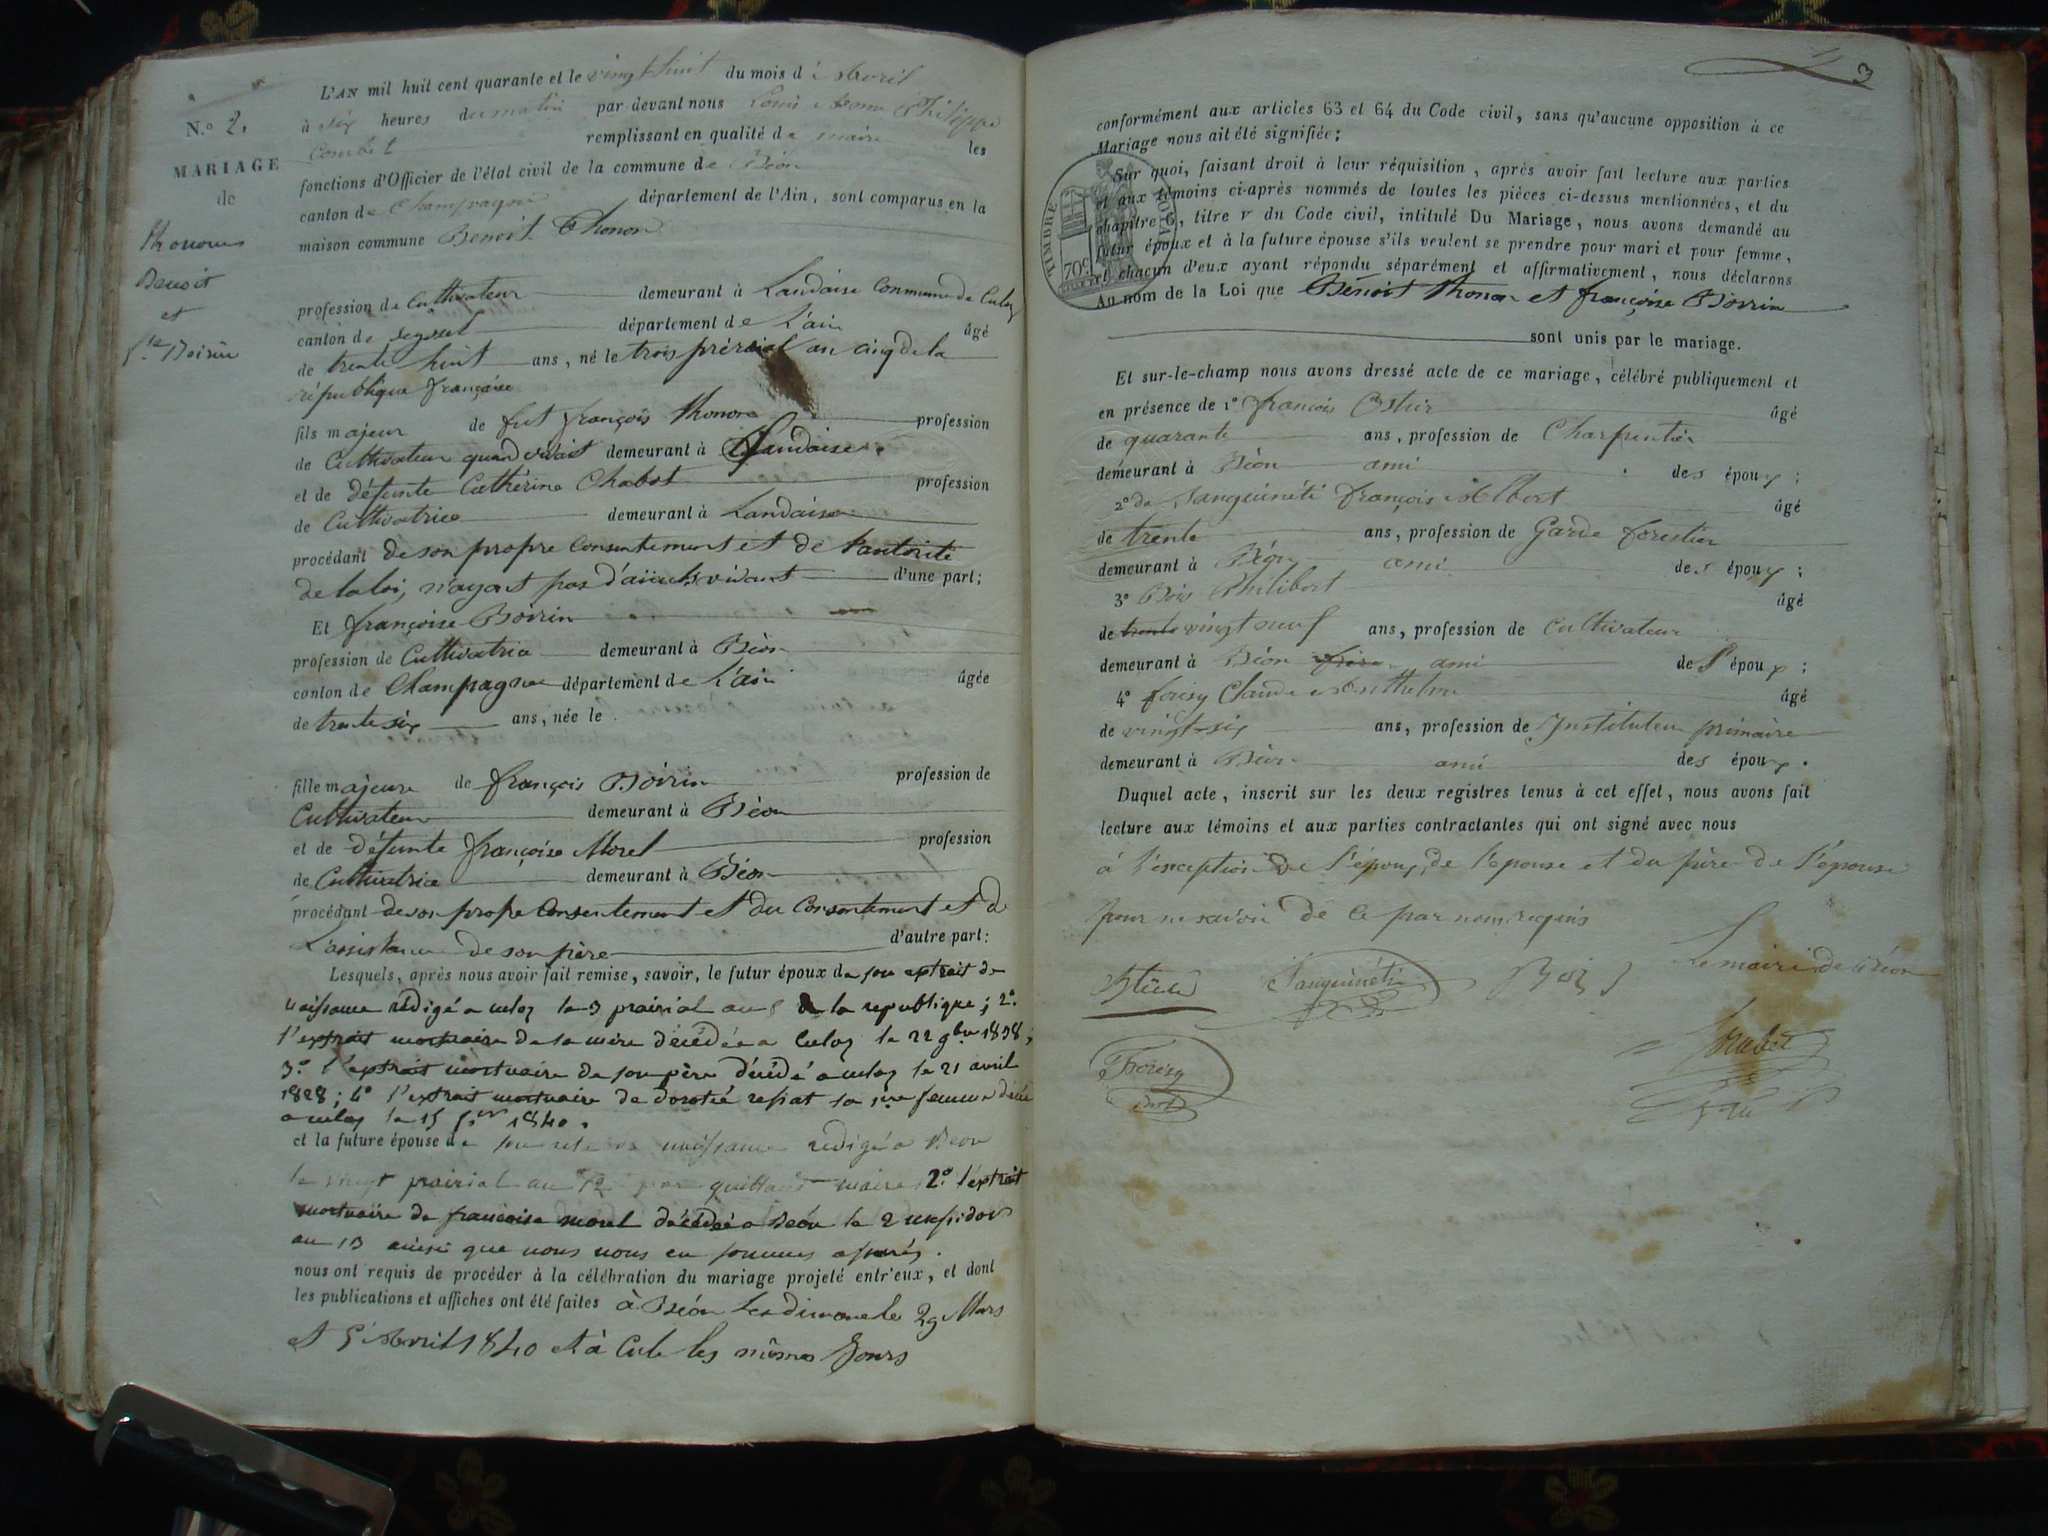 L'AN mil huit cent quarante et le vingt huit du mois d'Avril
N.º 2.
à six heures du matin par-devant nous Louis Philippe
remplissant en qualité de maire les
MARIAGE
fonctions d'Officier de l'état civil de la commune de Béon
de
canton de Champagne département de l'Ain, sont comparus en la
maison commune Benoit Thonon
Thonon
Benoit
et
f.se Boirin
profession de Cultivateur demeurant à Landaise Commune de Culoz
canton de Seyssel département de L'ain âgé
de trente huit ans, né le trois prérial an cinq de la
république française
fils majeur de fut françois Thonon profession
de Cultivateur quand vivait demeurant à Landaise
et de défunte Cathérine Chabot profession
de Cultivatrice demeurant à Landaise
procédant de son propre Consentement et de l'autorité
de la loi, n'ayant pas d'aïeuls vivant d'une part;
Et françoise Boirin
profession de Cultivatrice demeurant à Béon
canton de Champagne département de L'ain âgée
de trente six ans, née le
fille majeure de françois Boirin profession de
Cultivateur demeurant à Béon
et de défunte françoise Morel profession
de Cultivatrice demeurant à Béon
procédant de son propre Consentement et du Consentement et de
L'assistance de son père d'autre part:
Lesquels, après nous avoir fait remise, savoir, le futur époux de son extrait de
naissance rédigé a culoz le 3 prairial an 5 de la republique; 2.º
l'extrait mortuaire de sa mère décédée a Culoz le 22 9bre 1838;
3.º l'extrait mortuaire de son père décédé a culoz le 21 avril
1828; 4º l'extrait mortuaire de Dorotée repiat sa 1ère femme
a culoz le 15 1840.
et la future épouse de naissance redigé a Beon
le vingt prairial an 12 par maire 2.º l'extrait
mortuaire de francoise morel décédée a Béon le 2 messidor
an 13 ainsi que nous nous en sommes assurés.
nous ont requis de procéder à la célébration du mariage projeté entr'eux, et dont
les publications et affiches ont été faites à Béon Les dimanche 29 Mars
et 5 Avril 1840 et à Culo les mêmes Jours
3
conformément aux articles 63 et 64 du Code civil, sans qu'aucune opposition à ce
Mariage nous ait été signifiée;
Sur quoi, faisant droit à leur réquisition, après avoir fait lecture aux parties
et aux témoins ci-après nommés de toutes les pièces ci-dessus mentionnées, et du
chapitre 6, titre V du Code civil, intitulé Du Mariage, nous avons demandé au
futur époux et à la future épouse s'ils veulent se prendre pour mari et pour femme,
et chacun d'eux ayant répondu séparément et affirmativement, nous déclarons
Au nom de la Loi que Bénoit Thonon et françoise Boirin
sont unis par le mariage.
TIMBRE ROYAL
70c
Et sur-le-champ nous avons dressé acte de ce mariage, célébré publiquement et
en présence de 1º françois âgé
de quarante ans, profession de Charpentier
demeurant à Béon ami des époux;
2º de Sanguinéti françois Albert âgé
de trente ans, profession de Garde forestier
demeurant à Béon ami des époux;
3º Bois Philibert âgé
de trente vingt neuf ans, profession de Cultivateur
demeurant à Béon frère ami de l'époux;
4º Claude Anthelme âgé
de vingt-six ans, profession de Instituteur primaire
demeurant à Béon ami des époux.
Duquel acte, inscrit sur les deux registres tenus à cet effet, nous avons fait
lecture aux témoins et aux parties contractantes qui ont signé avec nous
à l'exception de l'époux, de l'epouse et du père de l'épouse
pour ne savoir de ce par nous requis
Le maire de Béon
Sanguinéti